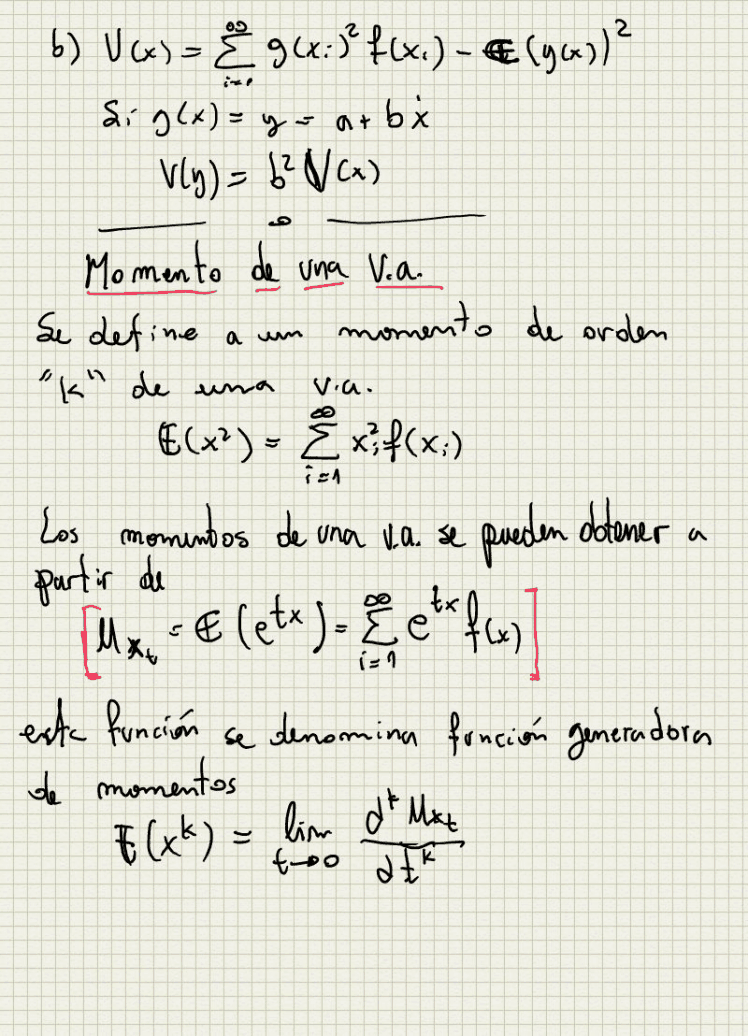 b) V(x) = ∑_{i=1}^{∞} g(x_i)² f(x_i) - E(y(x))²
Si g(x) = y = a + bx
V(y) = b² V(x)
Momento de una V.a.
Se define a un momento de orden
"k" de una v.a.
E(x²) = ∑_{i=1}^{∞} x_i² f(x_i)
Los momentos de una v.a. se pueden obtener a
partir de
[M_{x_t} = E(e^{tx}) = ∑_{i=1}^{∞} e^{tx} f(x)]
esta función se denomina función generadora
de momentos
E(x^k) = lim_{t→0} d^k M_{x_t} / dt^k